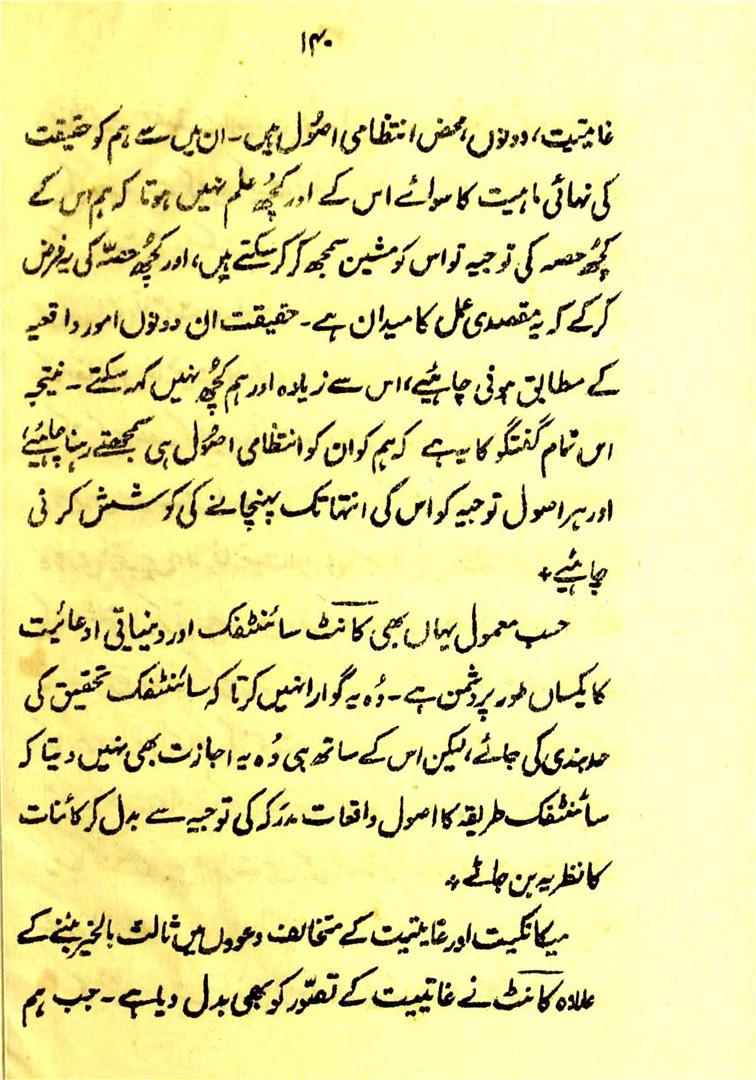 ۱۴۰
غایتیت، دونوں، محض انتظامی اصُول ہیں۔ ان میں سے ہم کو حقیقت
کی نہائی ماہیت کا سوائے اس کے اور کچُھ علم نہیں ہوتا کہ ہم اس کے
کچُھ حصہ کی توجیہ تو اس کو مشین سمجھ کر کر سکتے ہیں، اور کچُھ حصّہ کی یہ فرض
کر کے کہ یہ مقصدی عمل کا میدان ہے۔ حقیقت ان دونوں امور واقعیہ
کے مطابق ہونی چاہئیے، اس سے زیادہ اور ہم کچُھ نہیں کہہ سکتے۔ نتیجہ
اس تمام گفتگو کا یہ ہے کہ ہم کو ان کو انتظامی اصُول ہی سمجھتے رہنا چاہئیے،
اور ہر اصول توجیہ کو اس کی انتہا تک پہنچانے کی کوشش کرنی
چاہئیے +
حسب معمول یہاں بھی کانٹ سائنٹفک اور دینیاتی ادعائیت
کا یکساں طور پر دشمن ہے۔ وُہ یہ گوارا نہیں کرتا کہ سائنٹفک تحقیق کی
حد بندی کی جائے، لیکن اس کے ساتھ ہی وُہ یہ اجازت بھی نہیں دیتا کہ
سائنٹفک طریقہ کا اصول واقعات مدرکہ کی توجیہ سے بدل کر کائنات
کا نظریہ بن جائے +
میکانکیت اور غایتیت کے متخالف دعووں میں ثالث بالخیر بننے کے
علاوہ کانٹ نے غایتیت کے تصّور کو بھی بدل دیا ہے۔ جب ہم